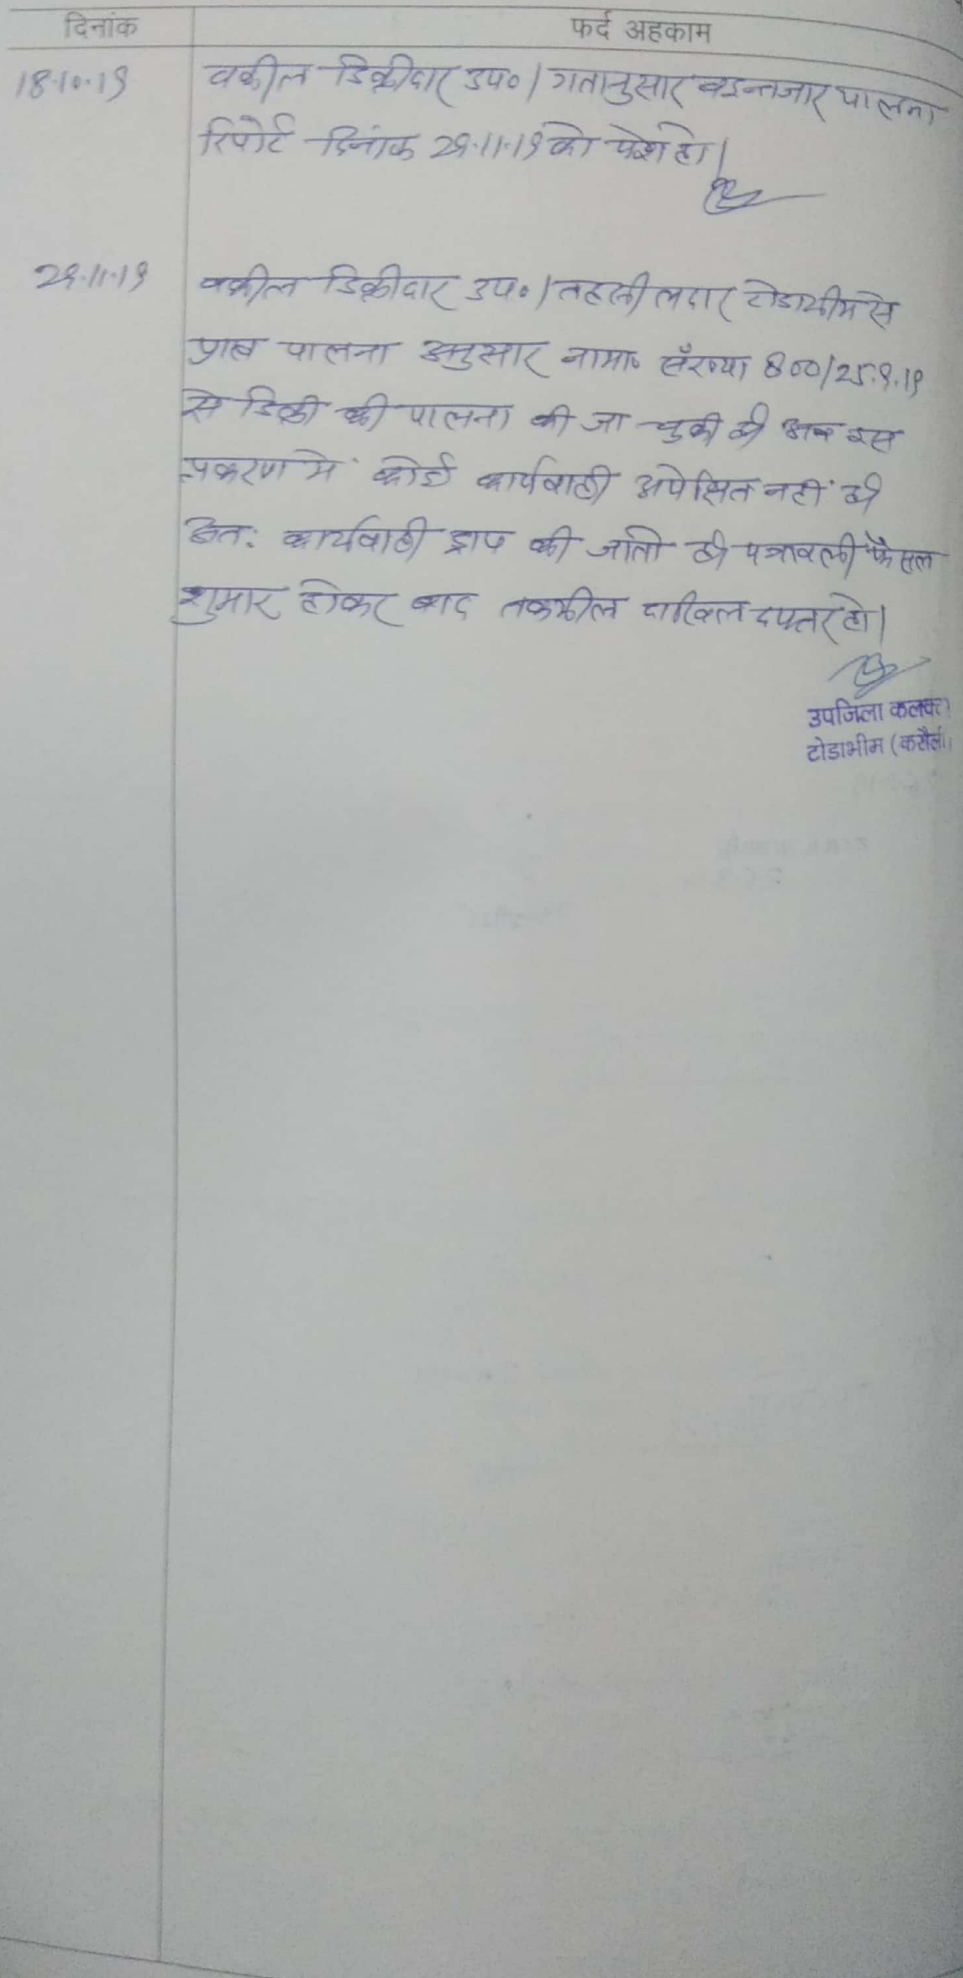 दिनांक फर्द अहकाम
18.10.19 वकील डिक्रीदार उप० । गतानुसार बइन्तजार पालना
रिपोर्ट दिनांक 29.11.19 को पेश हो।
29.11.19 वकील डिक्रीदार उप० । तहसीलदार टोडाभीम से
प्राप्त पालना अनुसार नामा० सँख्या 800/25.9.19
से डिक्री की पालना की जा चुकी है। अब इस
प्रकरण में कोई कार्यवाही अपेक्षित नहीं है।
अत: कार्यवाही ड्राप की जाती है। पत्रावली फैसल
शुमार होकर बाद तकमील दाखिल दफ्तर हो।
उपजिला कलक्टर
टोडाभीम (करौली)